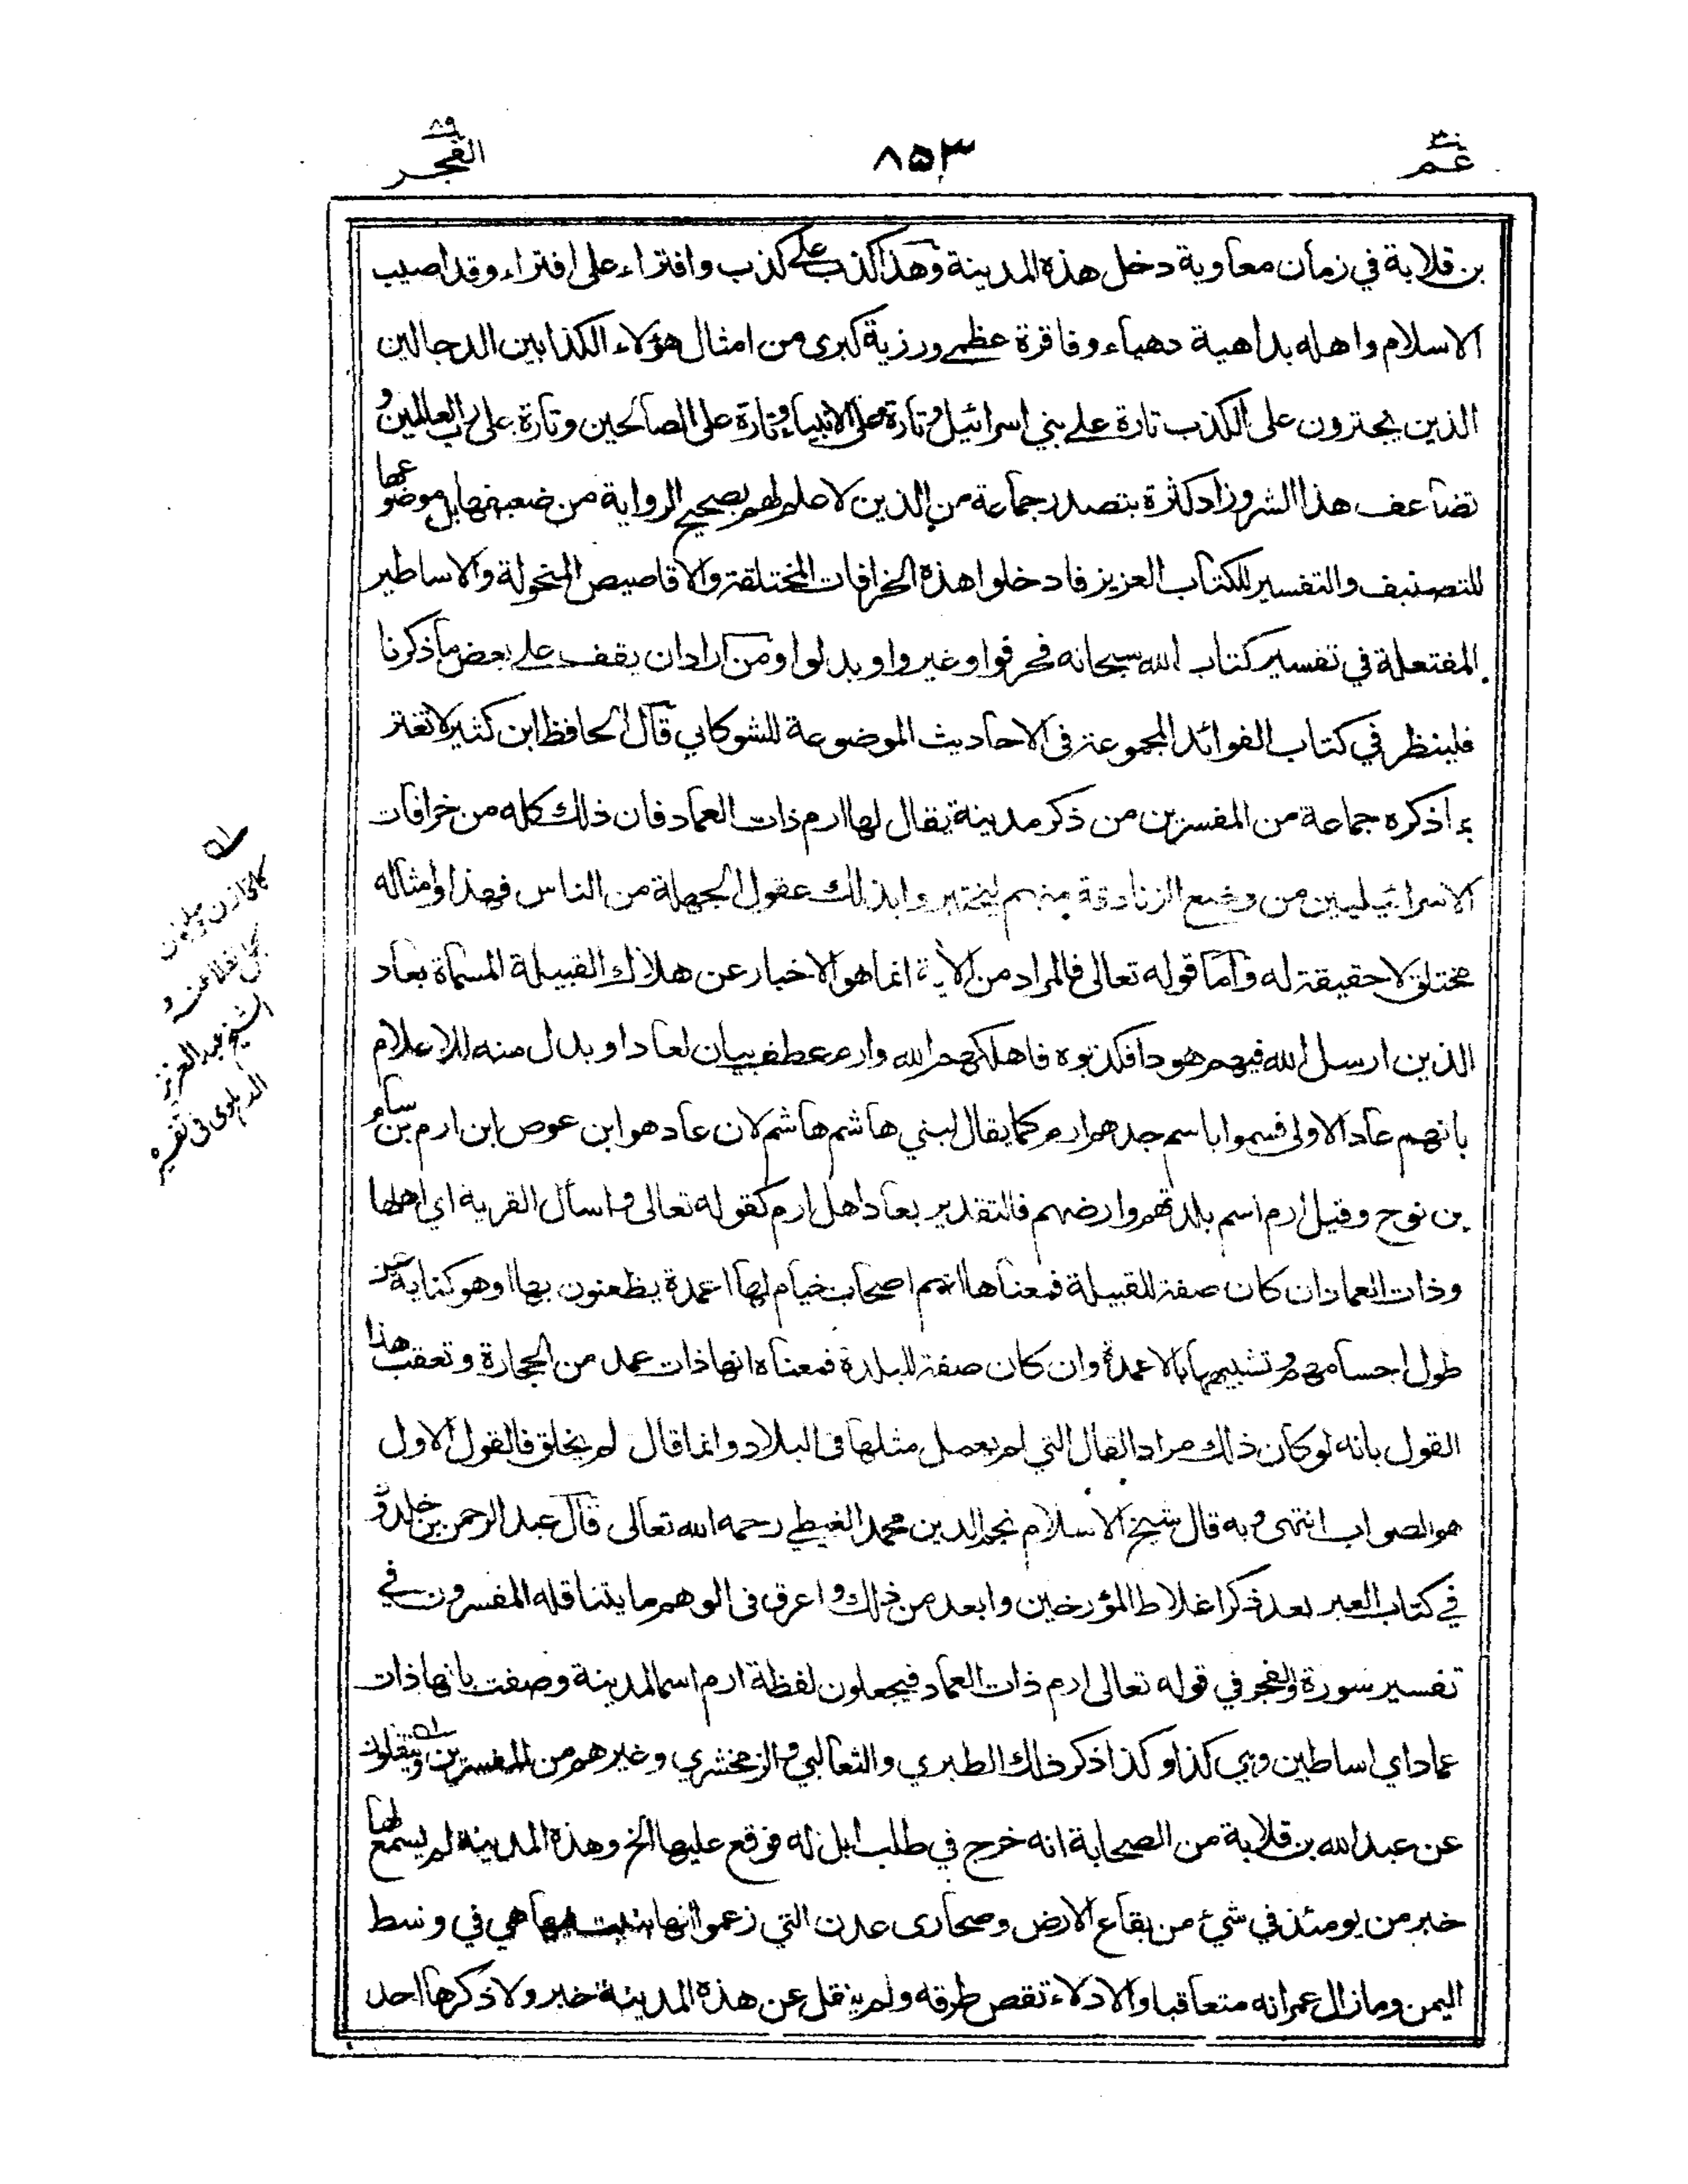 عم ٣٠
٨٥٣
الفجر ٨٩
بن قلابة في زمان معاوية دخل هذه المدينة وهذا كذب على كذب وافتراء على افتراء وقد اصيب
الاسلام واهله بداهية دهياء وفاقرة عظمى ورزية كبرى من امثال هؤلاء الكذابين الدجالين
الذين يجترون على الكذب تارة على بني اسرائيل وتارة على الانبياء وتارة على الصالحين وتارة على رب العالمين و
تضاعف هذا الشر وزاد كثرة بتصدر جماعة من الذين لا علم لهم بصحيح الرواية من ضعيفها بل موضوعها
للتصنيف والتفسير للكتاب العزيز فادخلوا هذه الخرافات المختلقة والاقاصيص المنحولة والاساطير
المفتعلة في تفسير كتاب الله سبحانه فحرفوا وغيروا وبدلوا ومن اراد ان يقف على بعض ما ذكرنا
فلينظر في كتاب الفوائد المجموعة في الاحاديث الموضوعة للشوكاني قال الحافظ ابن كثير لا تغتر
بما ذكره جماعة من المفسرين من ذكر مدينة يقال لها ارم ذات العماد فان ذلك كله من خرافات
الاسرائيليين من وضع الزنادقة منهم ليختبروا بذلك عقول الجهلة من الناس فهذا وامثاله
مختلق لا حقيقة له واما قوله تعالى فالمراد من الآية انما هو الاخبار عن هلاك القبيلة المسماة بعاد
الذين ارسل الله فيهم هودا فكذبوه فاهلكهم الله وارم عطف بيان لعاد او بدل منه للاعلام
بانهم عاد الاولى فسموا باسم جدهم ارم كما يقال لبني هاشم هاشم لان عاد هو ابن عوص ابن ارم بن سام
بن نوح وقيل ارم اسم بلدتهم وارضهم فالتقدير بعاد اهل ارم كقوله تعالى واسأل القرية اي اهلها
وذات العماد ان كان صفة للقبيلة فمعناها انهم اصحاب خيام لها اعمدة يظعنون بها او هو كناية عن
طول اجسامهم وتشبيهها بالاعمدة وان كان صفة للبلدة فمعناه انها ذات عمد من الحجارة وتعقب هذا
القول بانه لو كان ذلك مراد القال التي لم يعمل مثلها في البلاد وانما قال لم يخلق فالقول الاول
هو الصواب انتهى وبه قال شيخ الاسلام نجم الدين محمد الغيطي رحمه الله تعالى قال عبد الرحمن بن خلدون
في كتاب العبر بعد ذكر اغلاط المؤرخين وابعد من ذلك واعرق في الوهم ما يتناقله المفسرون في
تفسير سورة والفجر في قوله تعالى ارم ذات العماد فيجعلون لفظة ارم اسما لمدينة وصفت بانها ذات
عماد اي اساطين وبي كذا وكذا ذكر ذلك الطبري والثعالبي والزمخشري وغيرهم من المفسرين وينقلون
عن عبد الله بن قلابة من الصحابة انه خرج في طلب ابل له فوقع عليها الخ وهذه المدينة لم يسمع لها
خبر من يومئذ في شيء من بقاع الارض وصحارى عدن التي زعموا انها بنيت فيها هي في وسط
اليمن وما زال عمرانه متعاقبا والادلاء تقص طرقه ولم ينقل عن هذه المدينة خبر ولا ذكرها احد
الشيخ عبد العزيز
الدهلوى في تفسيره